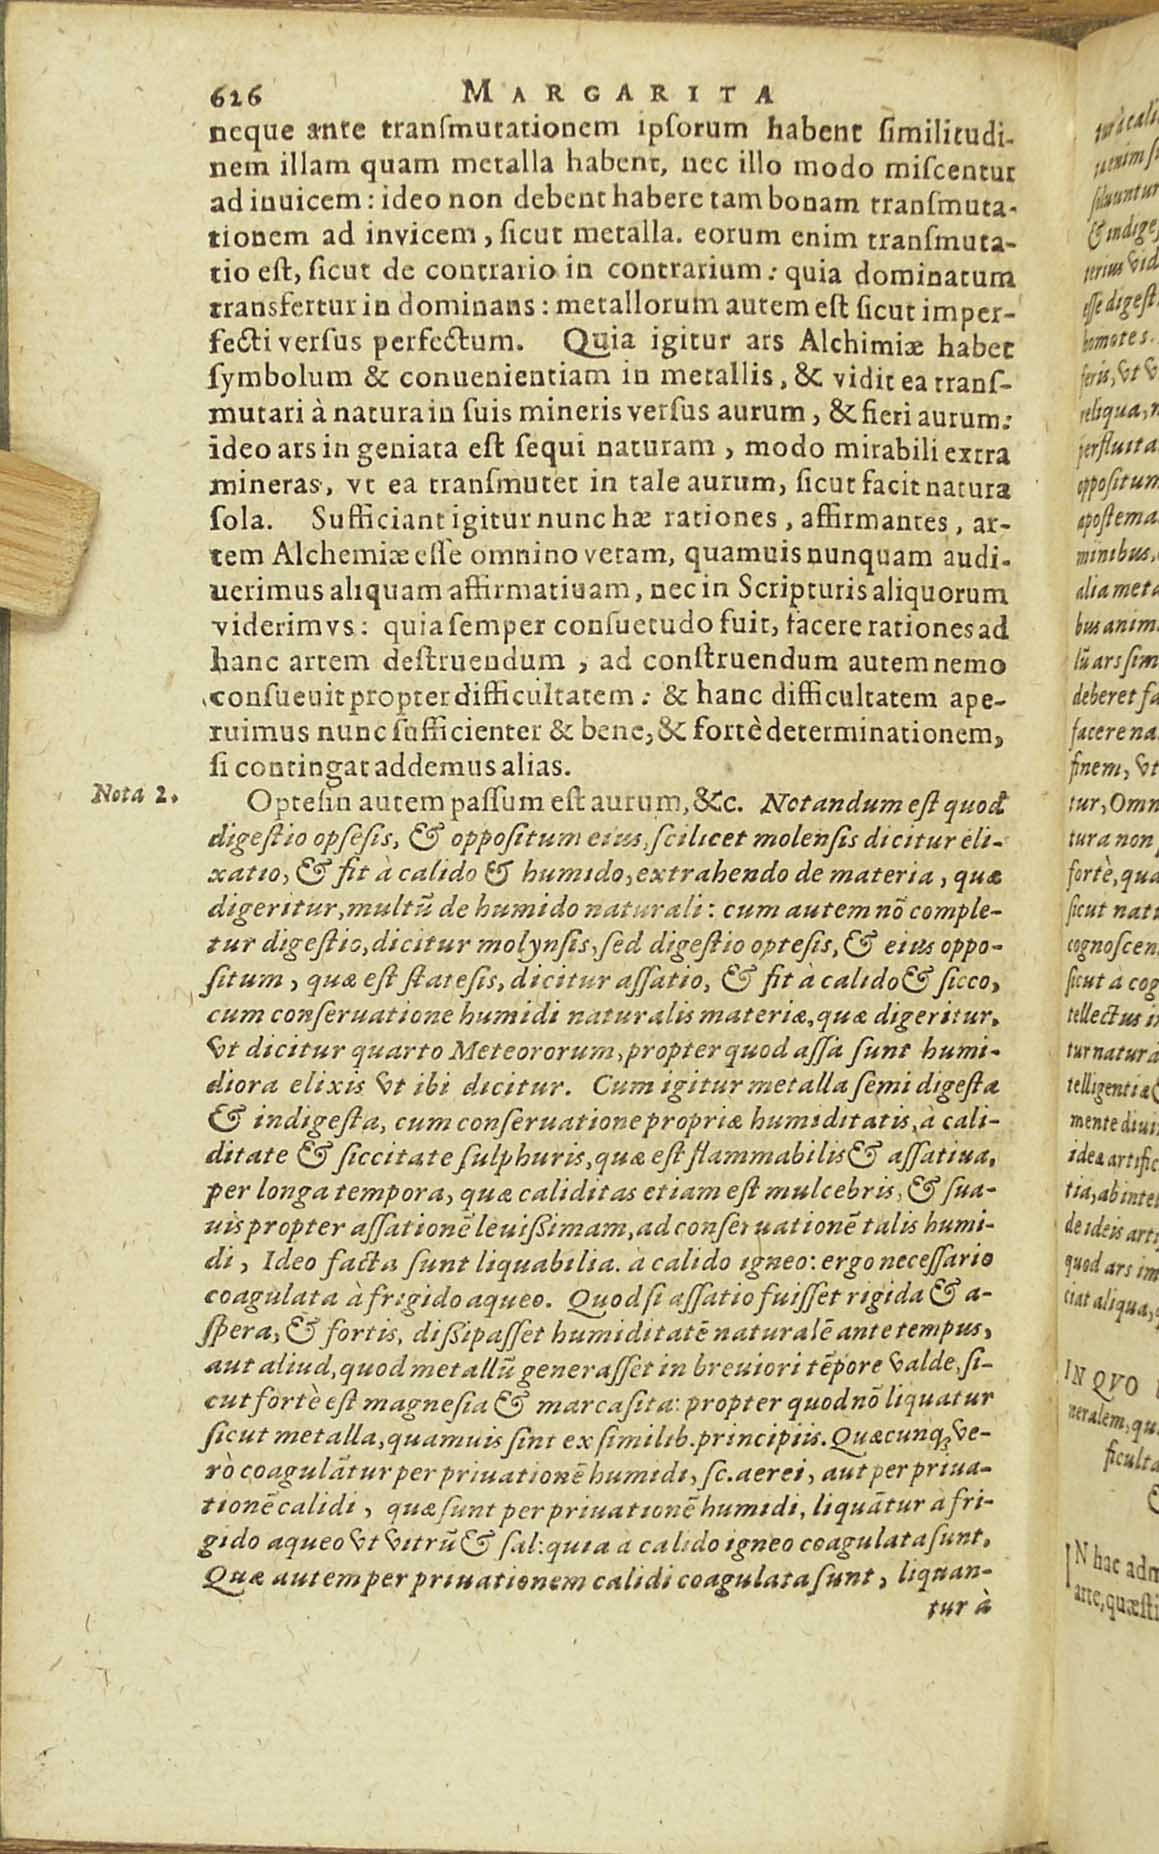 626 MARGARITA
neque ante tranſmutationem ipſorum habent ſimilitudi-
nem illam quam metalla habent, nec illo modo miſcentur
ad inuicem: ideo non debent habere tam bonam tranſmuta-
tionem ad invicem, ſicut metalla. eorum enim tranſmuta-
tio eſt, ſicut de contrario in contrarium: quia dominatum
transfertur in dominans: metallorum autem eſt ſicut imper-
fecti verſus perfectum. Quia igitur ars Alchimiæ habet
ſymbolum & conuenientiam in metallis, & vidit ea tranſ-
mutari à natura in ſuis mineris verſus aurum, & fieri aurum:
ideo ars in geniata eſt ſequi naturam, modo mirabili extra
mineras, vt ea tranſmutet in tale aurum, ſicut facit natura
ſola. Sufficiant igitur nunc hæ rationes, affirmantes, ar-
tem Alchemiæ eſſe omnino veram, quamuis nunquam audi-
uerimus aliquam affirmatiuam, nec in Scripturis aliquorum
viderimvs: quia ſemper conſuetudo fuit, facere rationes ad
hanc artem deſtruendum, ad conſtruendum autem nemo
conſueuit propter difficultatem: & hanc difficultatem ape-
ruimus nunc ſufficienter & bene, & fortè determinationem,
ſi contingat addemus alias.
Nota 2. Opteſin autem paſſum eſt aurum, &c. Notandum eſt quod
digeſtio opſeſis, & oppoſitum eius, ſcilicet molenſis dicitur eli-
xatio, & fit à calido & humido, extrahendo de materia, quæ
digeritur, multũ de humido naturali: cum autem nõ comple-
tur digeſtio, dicitur molynſis, ſed digeſtio opteſis, & eius oppo-
ſitum, quæ eſt ſtateſis, dicitur aſſatio, & fit à calido & ſicco,
cum conſeruatione humidi naturalis materiæ, quæ digeritur,
vt dicitur quarto Meteororum, propter quod aſſa ſunt humi-
diora elixis vt ibi dicitur. Cum igitur metalla ſemi digeſta
& indigeſta, cum conſeruatione propriæ humiditatis, à cali-
ditate & ſiccitate ſulphuris, quæ eſt flammabilis & aſſatiua,
per longa tempora, quæ caliditas etiam eſt mulcebris, & ſua-
uis propter aſſationẽ leuiſſimam, ad conſeruationẽ talis humi-
di, Ideo facta ſunt liquabilia. à calido igneo: ergo neceſſario
coagulata à frigido aqueo. Quod ſi aſſatio fuiſſet rigida & a-
ſpera, & fortis, diſſipaſſet humiditatẽ naturalẽ ante tempus,
aut aliud, quod metallũ generaſſet in breuiori tẽpore valde, ſi-
cut fortè eſt magneſia & marcaſita: propter quod nõ liquatur
ſicut metalla, quamuis ſint ex ſimilib. principiis. Quæcunq; ve-
rò coagulãtur per priuationẽ humidi, ſc. aerei, aut per priua-
tionẽ calidi, quæ ſunt per priuationẽ humidi, liquãtur à fri-
gido aqueo vt vitrũ & ſal: quia à calido igneo coagulata ſunt,
Quæ autem per priuationem calidi coagulata ſunt, liquan-
tur à